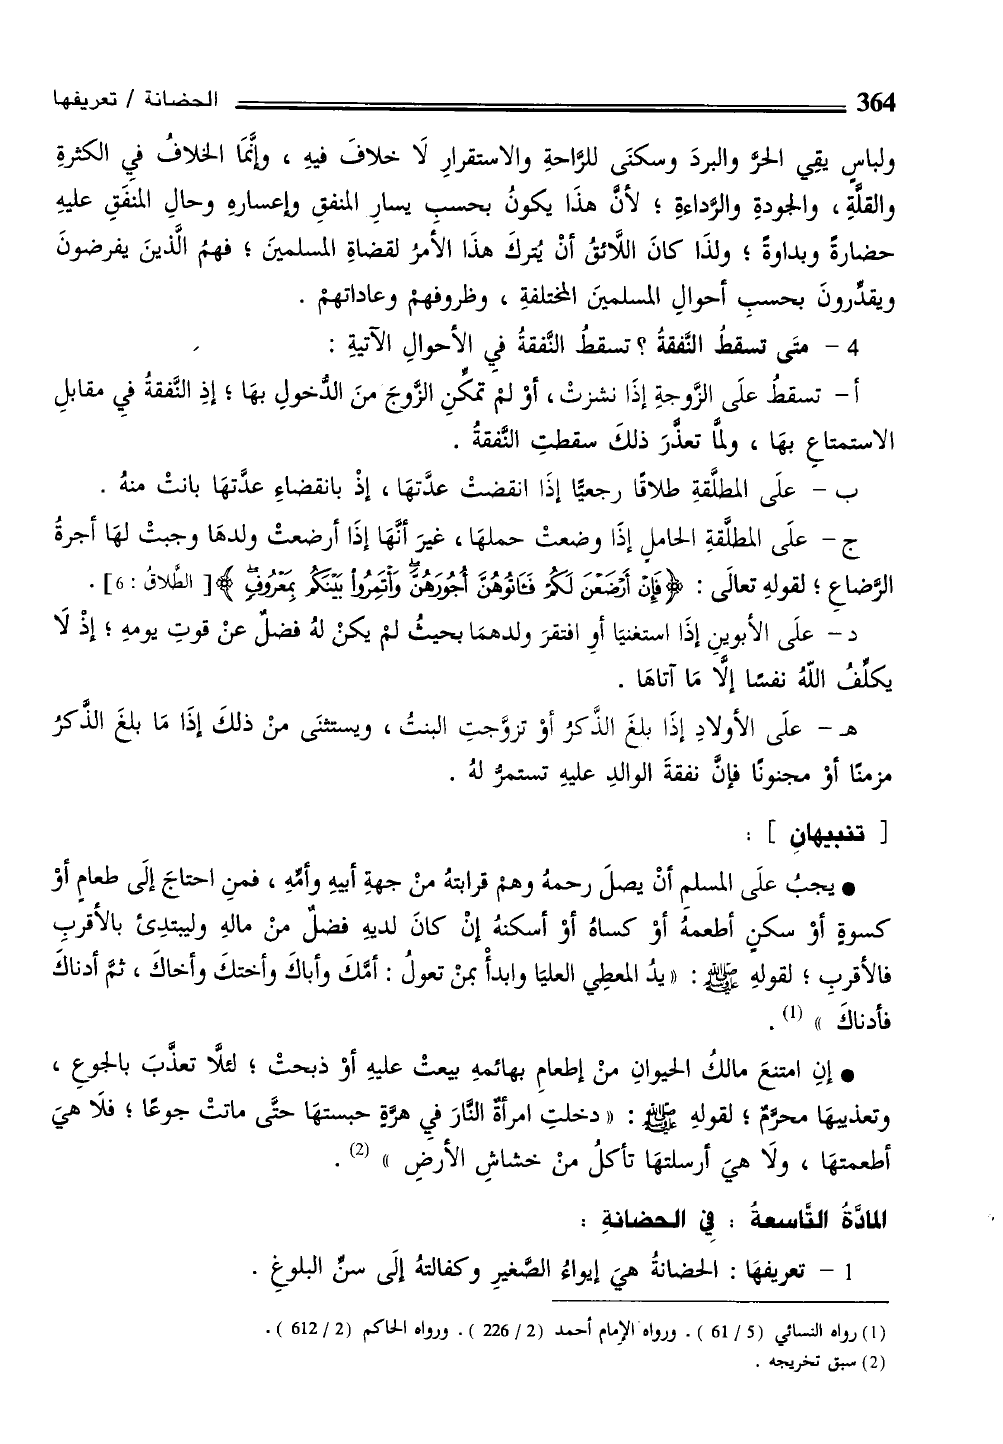 364 الحضانة / تعريفها
ولباسٍ يقِي الحرَّ والبردَ وسكنَى للرَّاحةِ والاستقرارِ لَا خلافَ فيهِ ، وإنَّمَا الخلافُ فِي الكثرةِ
والقلَّةِ ، والجودةِ والرَّداءةِ ؛ لأنَّ هذَا يكونُ بحسبِ يسارِ المنفقِ وإعسارهِ وحالِ المنفَقِ عليهِ
حضارةً وبداوةً ؛ ولذَا كانَ اللَّائقُ أنْ يُتركَ هذَا الأمرُ لقضاةِ المسلمينَ ؛ فهمُ الَّذينَ يفرضونَ
ويقدِّرونَ بحسبِ أحوالِ المسلمينَ المختلفةِ ، وظروفهمْ وعاداتهمْ .
4 - متَى تسقطُ النَّفقةُ ؟ تسقطُ النَّفقةُ فِي الأحوالِ الآتيةِ :
أ - تسقطُ علَى الزَّوجةِ إذَا نشزتْ ، أوْ لمْ تمكِّنِ الزَّوجَ منَ الدُّخولِ بهَا ؛ إذِ النَّفقةُ فِي مقابلِ
الاستمتاعِ بهَا ، ولمَّا تعذَّرَ ذلكَ سقطتِ النَّفقةُ .
ب - علَى المطلَّقةِ طلاقًا رجعيًّا إذَا انقضتْ عدَّتهَا ، إذْ بانقضاءِ عدَّتهَا بانتْ منهُ .
ج - علَى المطلَّقةِ الحاملِ إذَا وضعتْ حملهَا ، غيرَ أنَّهَا إذَا أرضعتْ ولدهَا وجبتْ لهَا أجرةُ
الرَّضاعِ ؛ لقولهِ تعالَى : ﴿ فَإِنْ أَرْضَعْنَ لَكُمْ فَـَٔاتُوهُنَّ أُجُورَهُنَّ ۖ وَأْتَمِرُوا۟ بَيْنَكُم بِمَعْرُوفٍ ۖ ﴾ [ الطَّلاقُ : 6 ] .
د - علَى الأبوينِ إذَا استغنيَا أوِ افتقرَ ولدهمَا بحيثُ لمْ يكنْ لهُ فضلٌ عنْ قوتِ يومهِ ؛ إذْ لَا
يكلِّفُ اللَّهُ نفسًا إلَّا مَا آتاهَا .
هـ - علَى الأولادِ إذَا بلغَ الذَّكرُ أوْ تزوَّجتِ البنتُ ، ويستثنَى منْ ذلكَ إذَا مَا بلغَ الذَّكرُ
مزمنًا أوْ مجنونًا فإنَّ نفقةَ الوالدِ عليهِ تستمرُّ لهُ .
[ تنبيهانِ ] :
● يجبُ علَى المسلمِ أنْ يصلَ رحمهُ وهمْ قرابتهُ منْ جهةِ أبيهِ وأمِّهِ ، فمنِ احتاجَ إلَى طعامٍ أوْ
كسوةٍ أوْ سكنٍ أطعمهُ أوْ كساهُ أوْ أسكنهُ إنْ كانَ لديهِ فضلٌ منْ مالهِ وليبتدِئْ بالأقربِ
فالأقربِ ؛ لقولهِ ﷺ : « يدُ المعطِي العليَا وابدأْ بمنْ تعولُ : أمَّكَ وأباكَ وأختكَ وأخاكَ ، ثمَّ أدناكَ
فأدناكَ » (1) .
● إنِ امتنعَ مالكُ الحيوانِ منْ إطعامِ بهائمهِ بيعتْ عليهِ أوْ ذبحتْ ؛ لئلَّا تعذَّبَ بالجوعِ ،
وتعذيبهَا محرَّمٌ ؛ لقولهِ ﷺ : « دخلتِ امرأةٌ النَّارَ فِي هرَّةٍ حبستهَا حتَّى ماتتْ جوعًا ؛ فلَا هيَ
أطعمتهَا ، ولَا هيَ أرسلتهَا تأكلُ منْ خشاشِ الأرضِ » (2) .
المادَّةُ التَّاسعةُ : فِي الحضانةِ :
1 - تعريفهَا : الحضانةُ هيَ إيواءُ الصَّغيرِ وكفالتهُ إلَى سنِّ البلوغِ .
(1) رواه النسائي (5 / 61 ) . ورواه الإمام أحمد (2 / 226 ) . ورواه الحاكم (2 / 612 ) .
(2) سبق تخريجه .